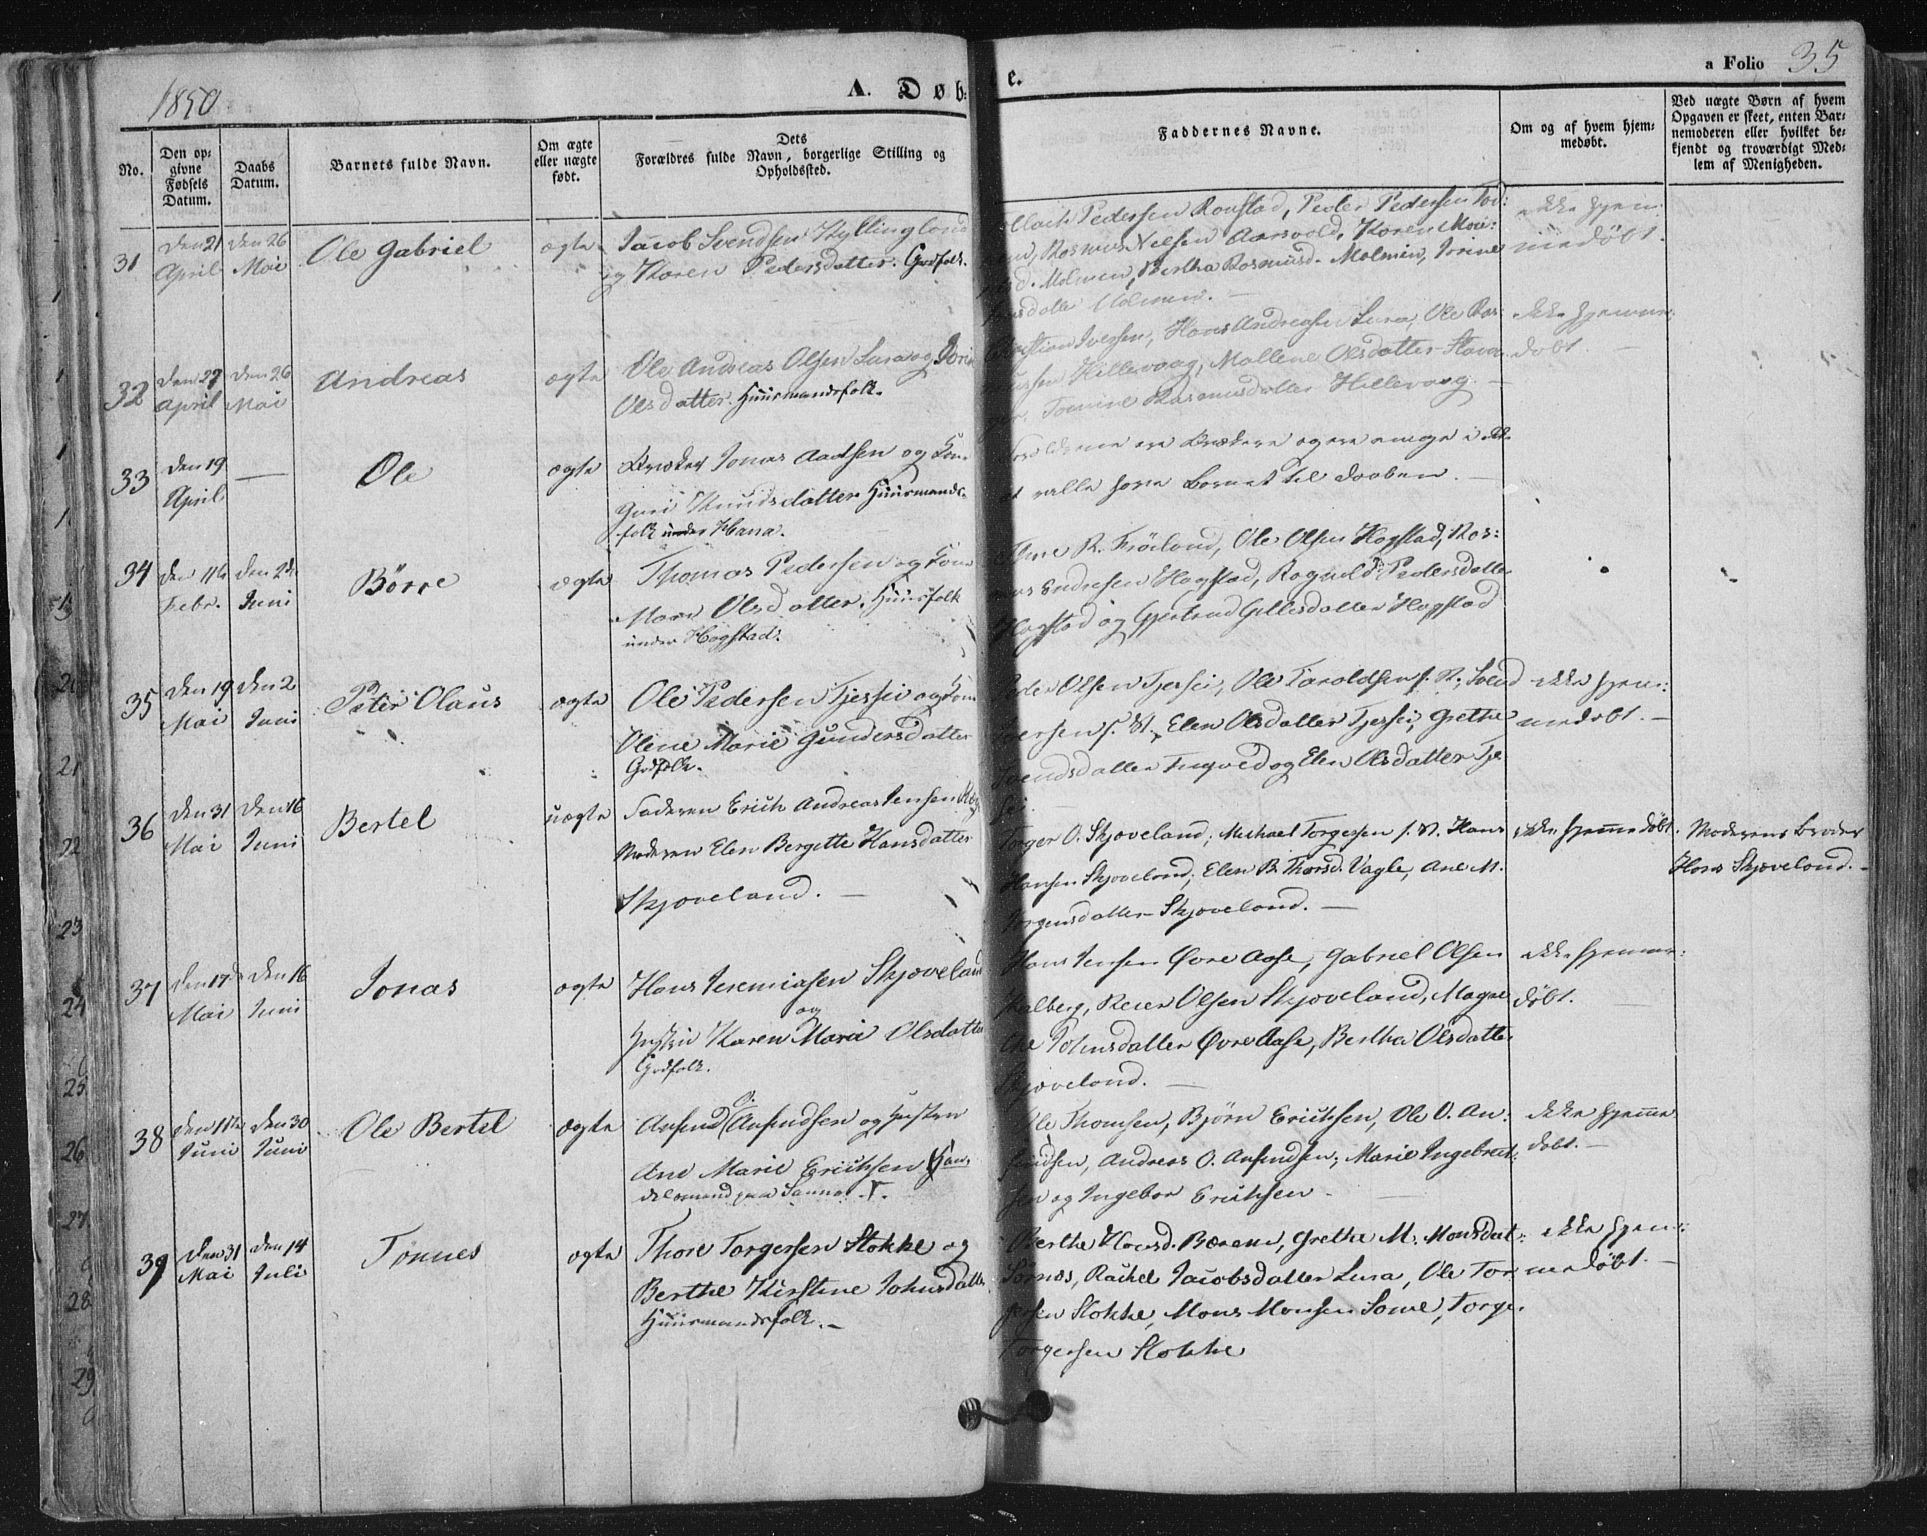 1850
A. Døbte.
a Folio 35
No.
Den opgivne Fødsels Datum.
Daabs Datum.
Barnets fulde Navn.
Om ægte eller uægte født.
Dets Forældres fulde Navn, borgerlige Stilling og Opholdssted.
Faddernes Navne.
Om og af hvem hjemmedøbt.
Ved uægte Børn af hvem Opgaven er skeet, enten Barnemoderen eller hvilket bekjendt og troværdigt Medlem af Menigheden.
31
den 21 April
den 26 Mai
Ole Gabriel
ægte
Jacob Svendsen Kyllingland
og Karen Pedersdatter. Gdfolk.
Pedersen Ronstad, Peder Pedersen
Rasmus Nilsen Aarsvold, Karen
Molmen, Bertha Rasmusd. Molmen, Jorine
datter Molmen.
ikke hjem-
medøbt.
32
den 27 April
den 26 Mai
Andreas
ægte
Ole Andreas Olsen Lura og
Olsdatter. Huusmandsfolk.
Iversen, Hans Andreasen Lura, Ole Ras-
Hillevaag, Mallene Olsdatter
Tomine Rasmusdatter Hillevaag.
ikke hjemme-
døbt.
33
den 19 April
—
Ole
ægte
Qvæker Jonas Aadsen og Kone
Guri Knudsdatter Huusmands-
folk under Hana.
Forældrene ere Qvækere og ere
ville have Barnet til Daaben.
34
den 11te Febr.
den 2den Juni
Börre
ægte
Thomas Pedersen og Kone
Maren Olsdatter. Huusfolk
under Hogstad.
R. Fröiland, Ole Olsen Hogstad, Ras-
mus Endresen Hogstad, Ragnild Pedersdatter
Hogstad og Gjertrud Gillesdatter Hogstad
35
den 19 Mai
den 2 Juni
Peter Olaus
ægte
Ole Pedersen Tjessei og Kone
Olene Marie Gundersdatter
Gdfolk.
Peder Olsen Tjessei, Ole Taroldsen s. St., Svend
Iversen s. St., Elen Olsdatter Tjessei, Grethe
Svendsdatter og Elen Olsdatter Tjes-
sei.
ikke hjem-
medøbt.
36
den 31 Mai
den 16 Juni
Bertel
uægte
Faderen Erich Andreas Jensen
Moderen Elen Bergitte Hansdatter
Skjæveland.
Torger O. Skjæveland, Michael Torgersen s. St. Hans
Hansen Skjæveland, Elen B. Thorsd. Vagle, Ane M.
Jørgensdatter Skjæveland.
ikke hjemmedøbt.
Moderens Broder
Hans Skjæveland.
37
den 17de Mai
den 16 Juni
Jonas
ægte
Hans Jeremiasen Skjæveland
og
Hustru Karen Maria Olsdatter
Gdfolk.
Hans Jensen Øvre Aase, Gabriel Olsen
Malberg, Reier Olsen Skjæveland, Magre-
the Johnsdatter Øvre Aase, Bertha Olsdatter
Skjæveland.
ikke hjemme-
døbt.
38
den 11te Juni
den 30 Juni
Ole Bertel
ægte
Ausend O. Ausendsen og Hustru
Ane Marie Erichsen Han-
delsmand paa Sannæs.
Ole Thomsen, Bjørn Erichsen, Ole O. Au-
sendsen, Andreas O. Ausendsen, Marie Ingebret-
sen og Ingebor Erichsen.
ikke hjemme
døbt.
39
den 31 Mai
den 14 Juli
Tønnes
ægte
Thore Torgersen Stokke og
Berthe Kirstine Johnsdatter
Huusmandsfolk.
Berthe Grethe M. Monsdat-
Rachel Jacobsdatter Lura, Ole Tor-
gersen Stokke, Mons Monsen Some, Torger
Torgersen Stokke
ikke hjem-
medøbt.